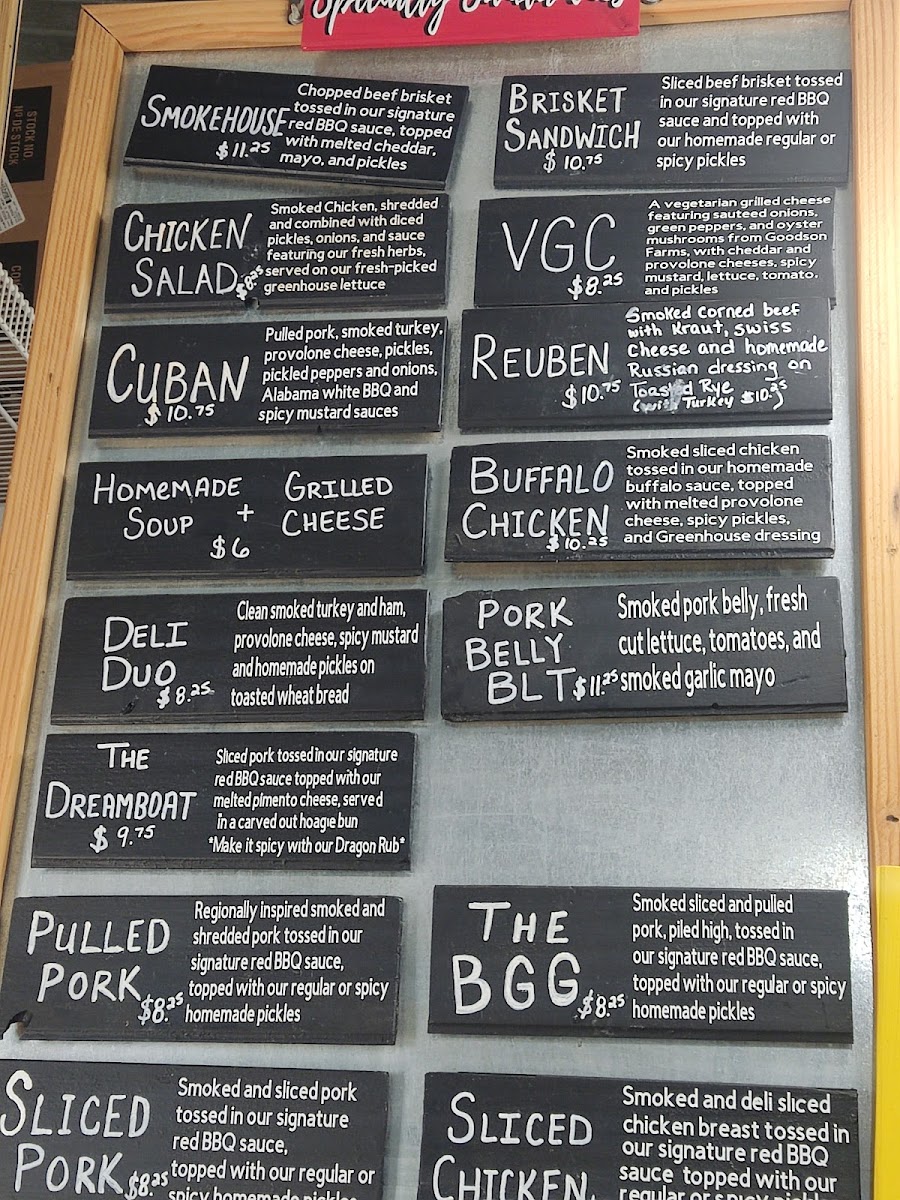 Specialty Sandwiches
STOCK NO.
Nº DE STOCK
SMOKEHOUSE
$11.25
Chopped beef brisket
tossed in our signature
red BBQ sauce, topped
with melted cheddar,
mayo, and pickles
BRISKET
SANDWICH
$10.75
Sliced beef brisket tossed
in our signature red BBQ
sauce and topped with
our homemade regular or
spicy pickles
CHICKEN
SALAD
$8.25
Smoked Chicken, shredded
and combined with diced
pickles, onions, and sauce
featuring our fresh herbs,
served on our fresh-picked
greenhouse lettuce
VGC
$8.25
A vegetarian grilled cheese
featuring sauteed onions,
green peppers, and oyster
mushrooms from Goodson
Farms, with cheddar and
provolone cheeses, spicy
mustard, lettuce, tomato,
and pickles
CUBAN
$10.75
Pulled pork, smoked turkey,
provolone cheese, pickles,
pickled peppers and onions,
Alabama white BBQ and
spicy mustard sauces
REUBEN
$10.75
Smoked corned beef
with Kraut, swiss
cheese and homemade
Russian dressing on
Toasted Rye
(with Turkey $10.25)
HOMEMADE
SOUP
+
GRILLED
CHEESE
$6
BUFFALO
CHICKEN
$10.25
Smoked sliced chicken
tossed in our homemade
buffalo sauce, topped
with melted provolone
cheese, spicy pickles,
and Greenhouse dressing
DELI
DUO
$8.25
Clean smoked turkey and ham,
provolone cheese, spicy mustard
and homemade pickles on
toasted wheat bread
PORK
BELLY
BLT $11.25
Smoked pork belly, fresh
cut lettuce, tomatoes, and
smoked garlic mayo
THE
DREAMBOAT
$9.75
Sliced pork tossed in our signature
red BBQ sauce topped with our
melted pimento cheese, served
in a carved out hoagie bun
*Make it spicy with our Dragon Rub*
PULLED
PORK
$8.25
Regionally inspired smoked and
shredded pork tossed in our
signature red BBQ sauce,
topped with our regular or spicy
homemade pickles
THE
BGG
$8.25
Smoked sliced and pulled
pork, piled high, tossed in
our signature red BBQ sauce,
topped with our regular or spicy
homemade pickles
SLICED
PORK
$8.25
Smoked and sliced pork
tossed in our signature
red BBQ sauce,
topped with our regular or
spicy homemade pickles
SLICED
CHICKEN
Smoked and deli sliced
chicken breast tossed in
our signature red BBQ
sauce topped with our
regular or spicy pickles